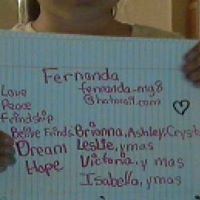 Fernanda
Love fernanda-mg8
Peace @hotmail.com
Friendship
Belive Frinds, Brianna, Ashley, Cryst
Dream Leslie, y mas
Hope Victoria, y mas
Isabella, y mas